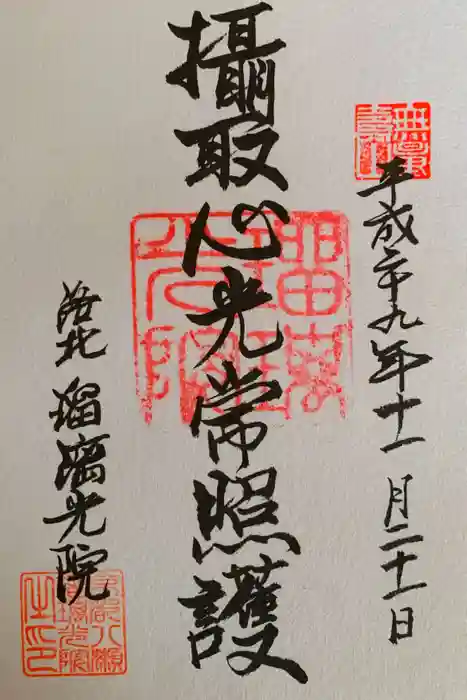 平成二十九年十一月二十一日
攝取心光常照護
洛北 瑠璃光院